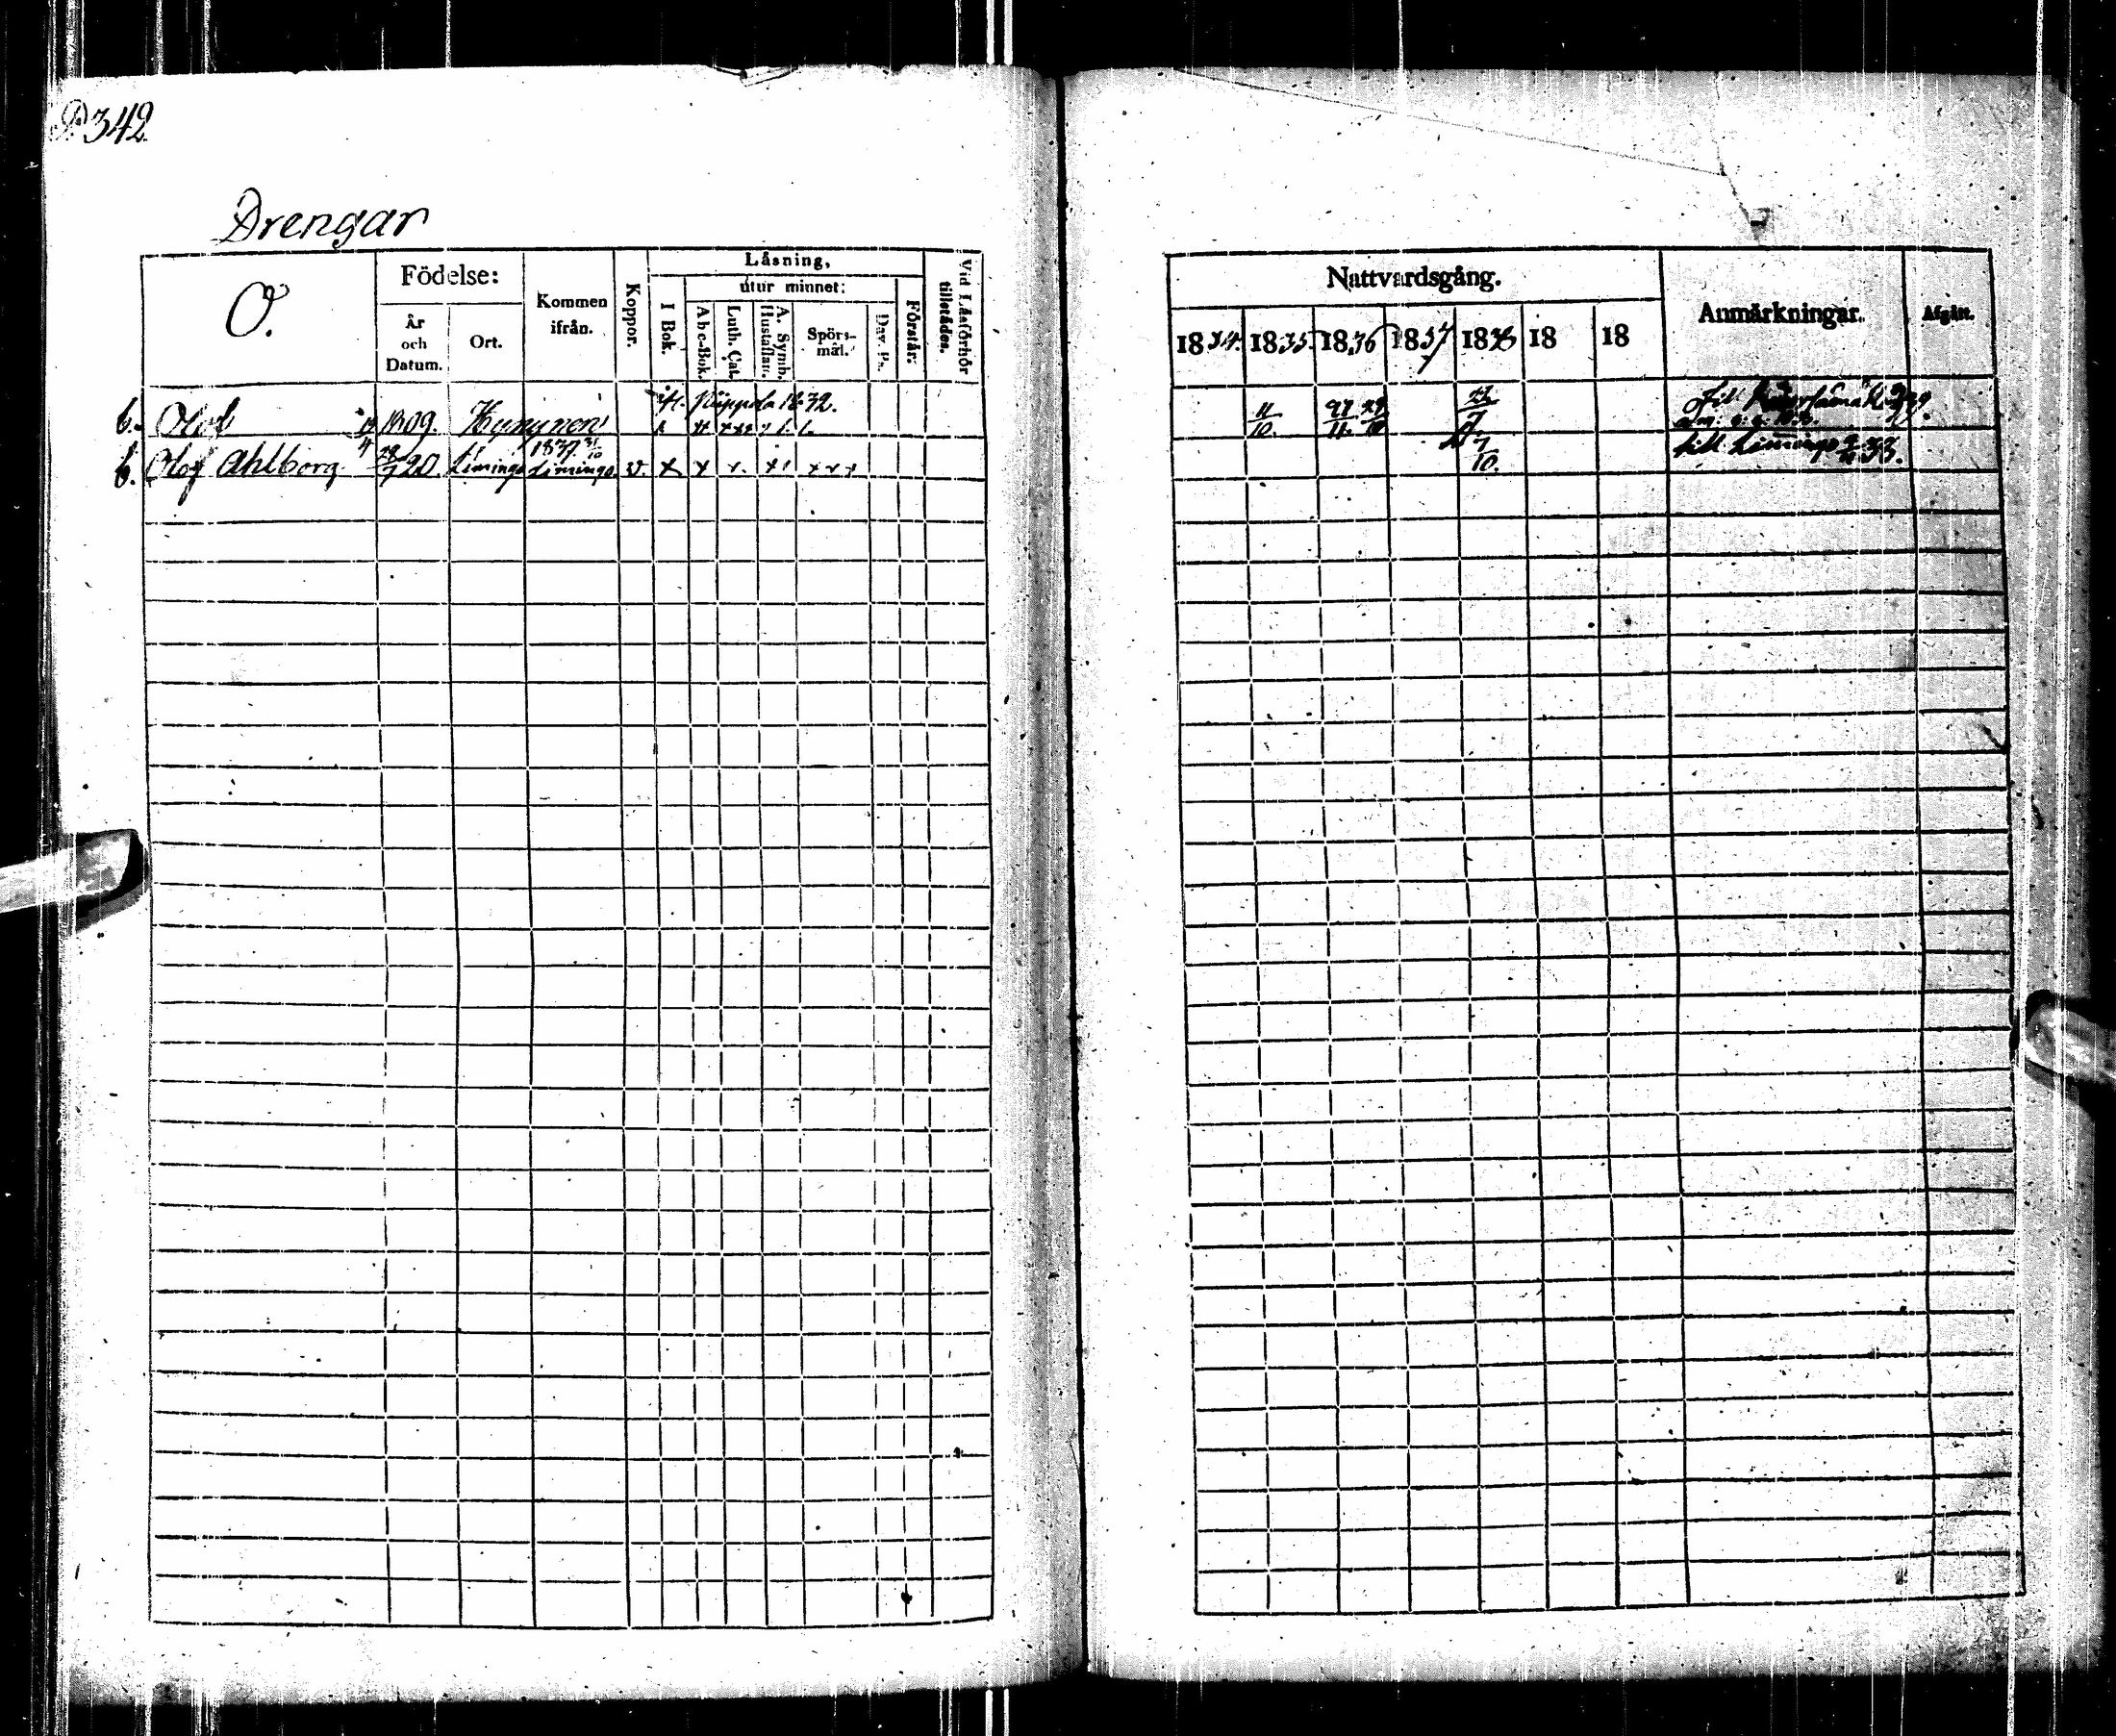 P. 342
Drengar
O.
Födelse:
År
och
Datum.
Ort.
Kommen
ifrån.
Koppor.
Läsning,
I Bok.
utur minnet:
Abc-Bok.
Luth. Cat.
A. Symb.
Hustaflan.
Spörs-
mål.
Dav. Ps.
Förstår:
Vid Läsförhör
tillstädes.
b. Olof 1809. Hyrynen Piippola 1832.
b. Olof Ahlborg 28/7 20 Limingo 1837 31/10 Limingo. v. x x x.
Nattvardsgång.
1834. 1835. 1836 1837 1838 18 18
Anmärkningar.
Afgått.
11/10. 29/10
7/10.
till Limingo